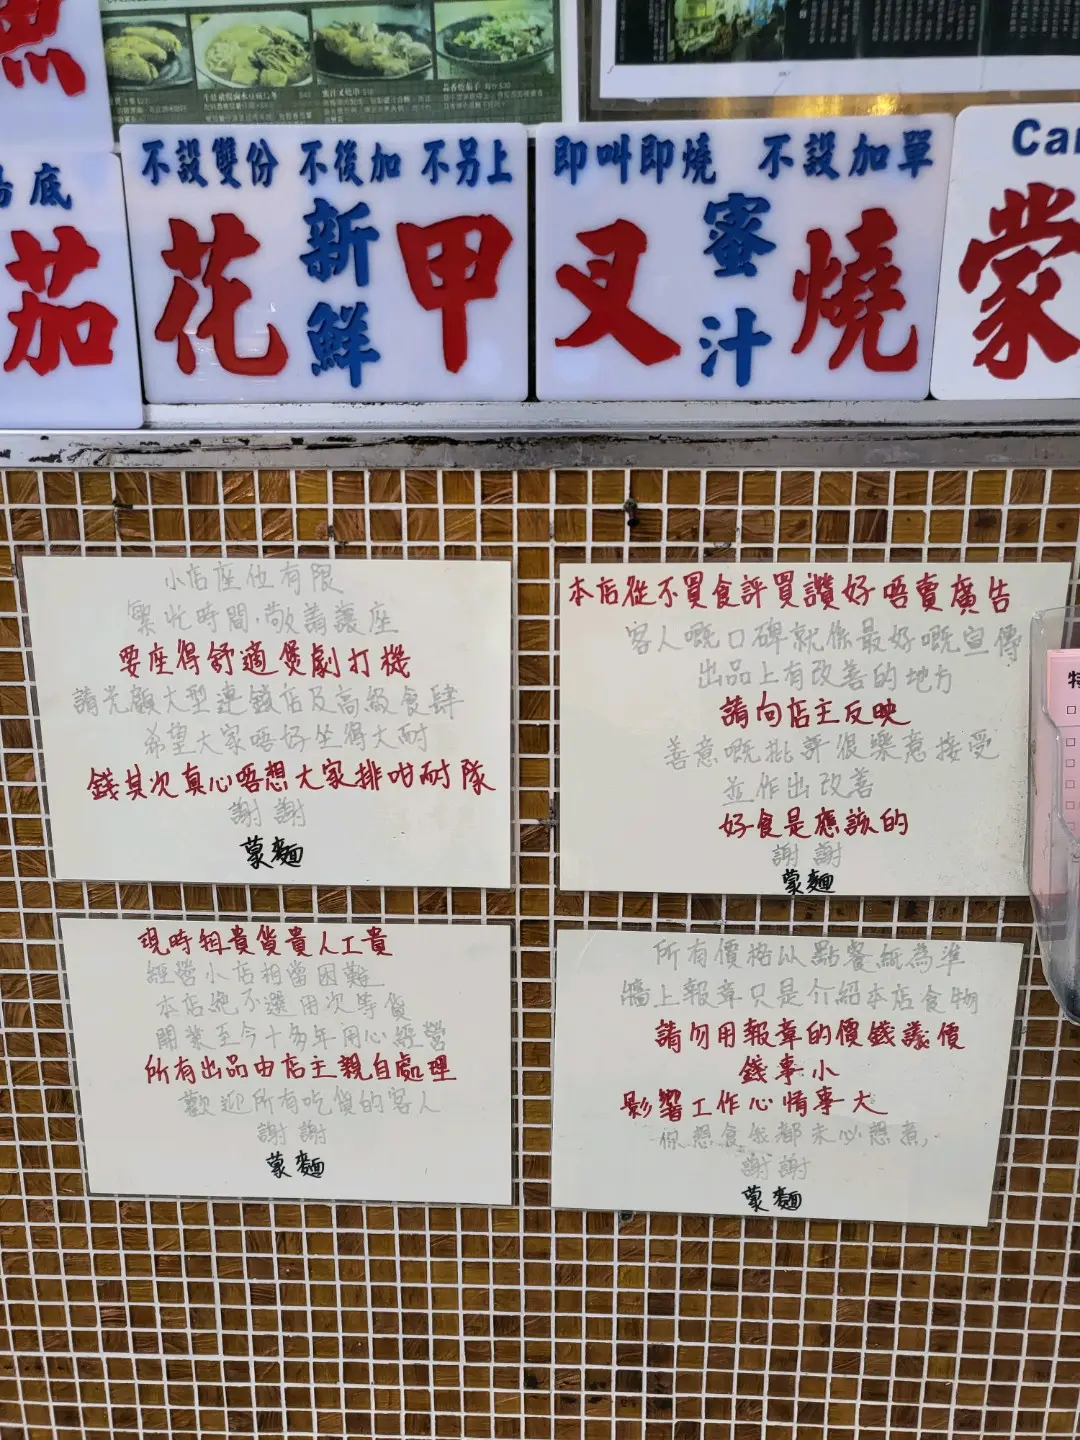 魚
湯底
茄
不設雙份 不後加 不另上
花 新鮮 甲
即叫即燒 不設加單
叉 蜜汁 燒
Car
蒙
小店座位有限
繁忙時間,敬請讓座
要座得舒適煲劇打機
請光顧大型連鎖店及高級食肆
希望大家唔好坐得太耐
錢其次真心唔想大家排咁耐隊
謝謝
蒙麵
本店從不買食評買讚好唔賣廣告
客人嘅口碑就係最好嘅宣傳
出品上有改善的地方
請向店主反映
善意嘅批評很樂意接受
並作出改善
好食是應該的
謝謝
蒙麵
特
現時租貴貨貴人工貴
經營小店相當困難
本店絕不選用次等貨
開業至今十多年用心經營
所有出品由店主親自處理
歡迎所有吃貨的客人
謝謝
蒙麵
所有價格以點餐紙為準
牆上報章只是介紹本店食物
請勿用報章的價錢議價
錢事小
影響工作心情事大
你想食我都未必想煮,
謝謝
蒙麵